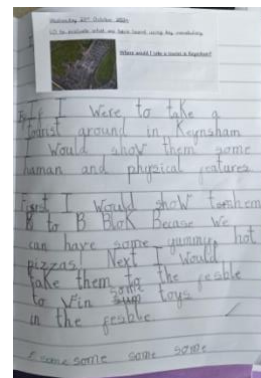 Wednesday 23rd October 2024
LO: to evaluate what we have learnt using key vocabulary.
Where would I take a tourist in Keynsham?
If I were to take a
tourist ground in Keynsham
I would show them some
human and physical features
First I would show them
B to B Blok Becase we
can have some yummie hot
pizzas! Next I would
take them to the fesble
to win some toys
in the fesble
some some some some